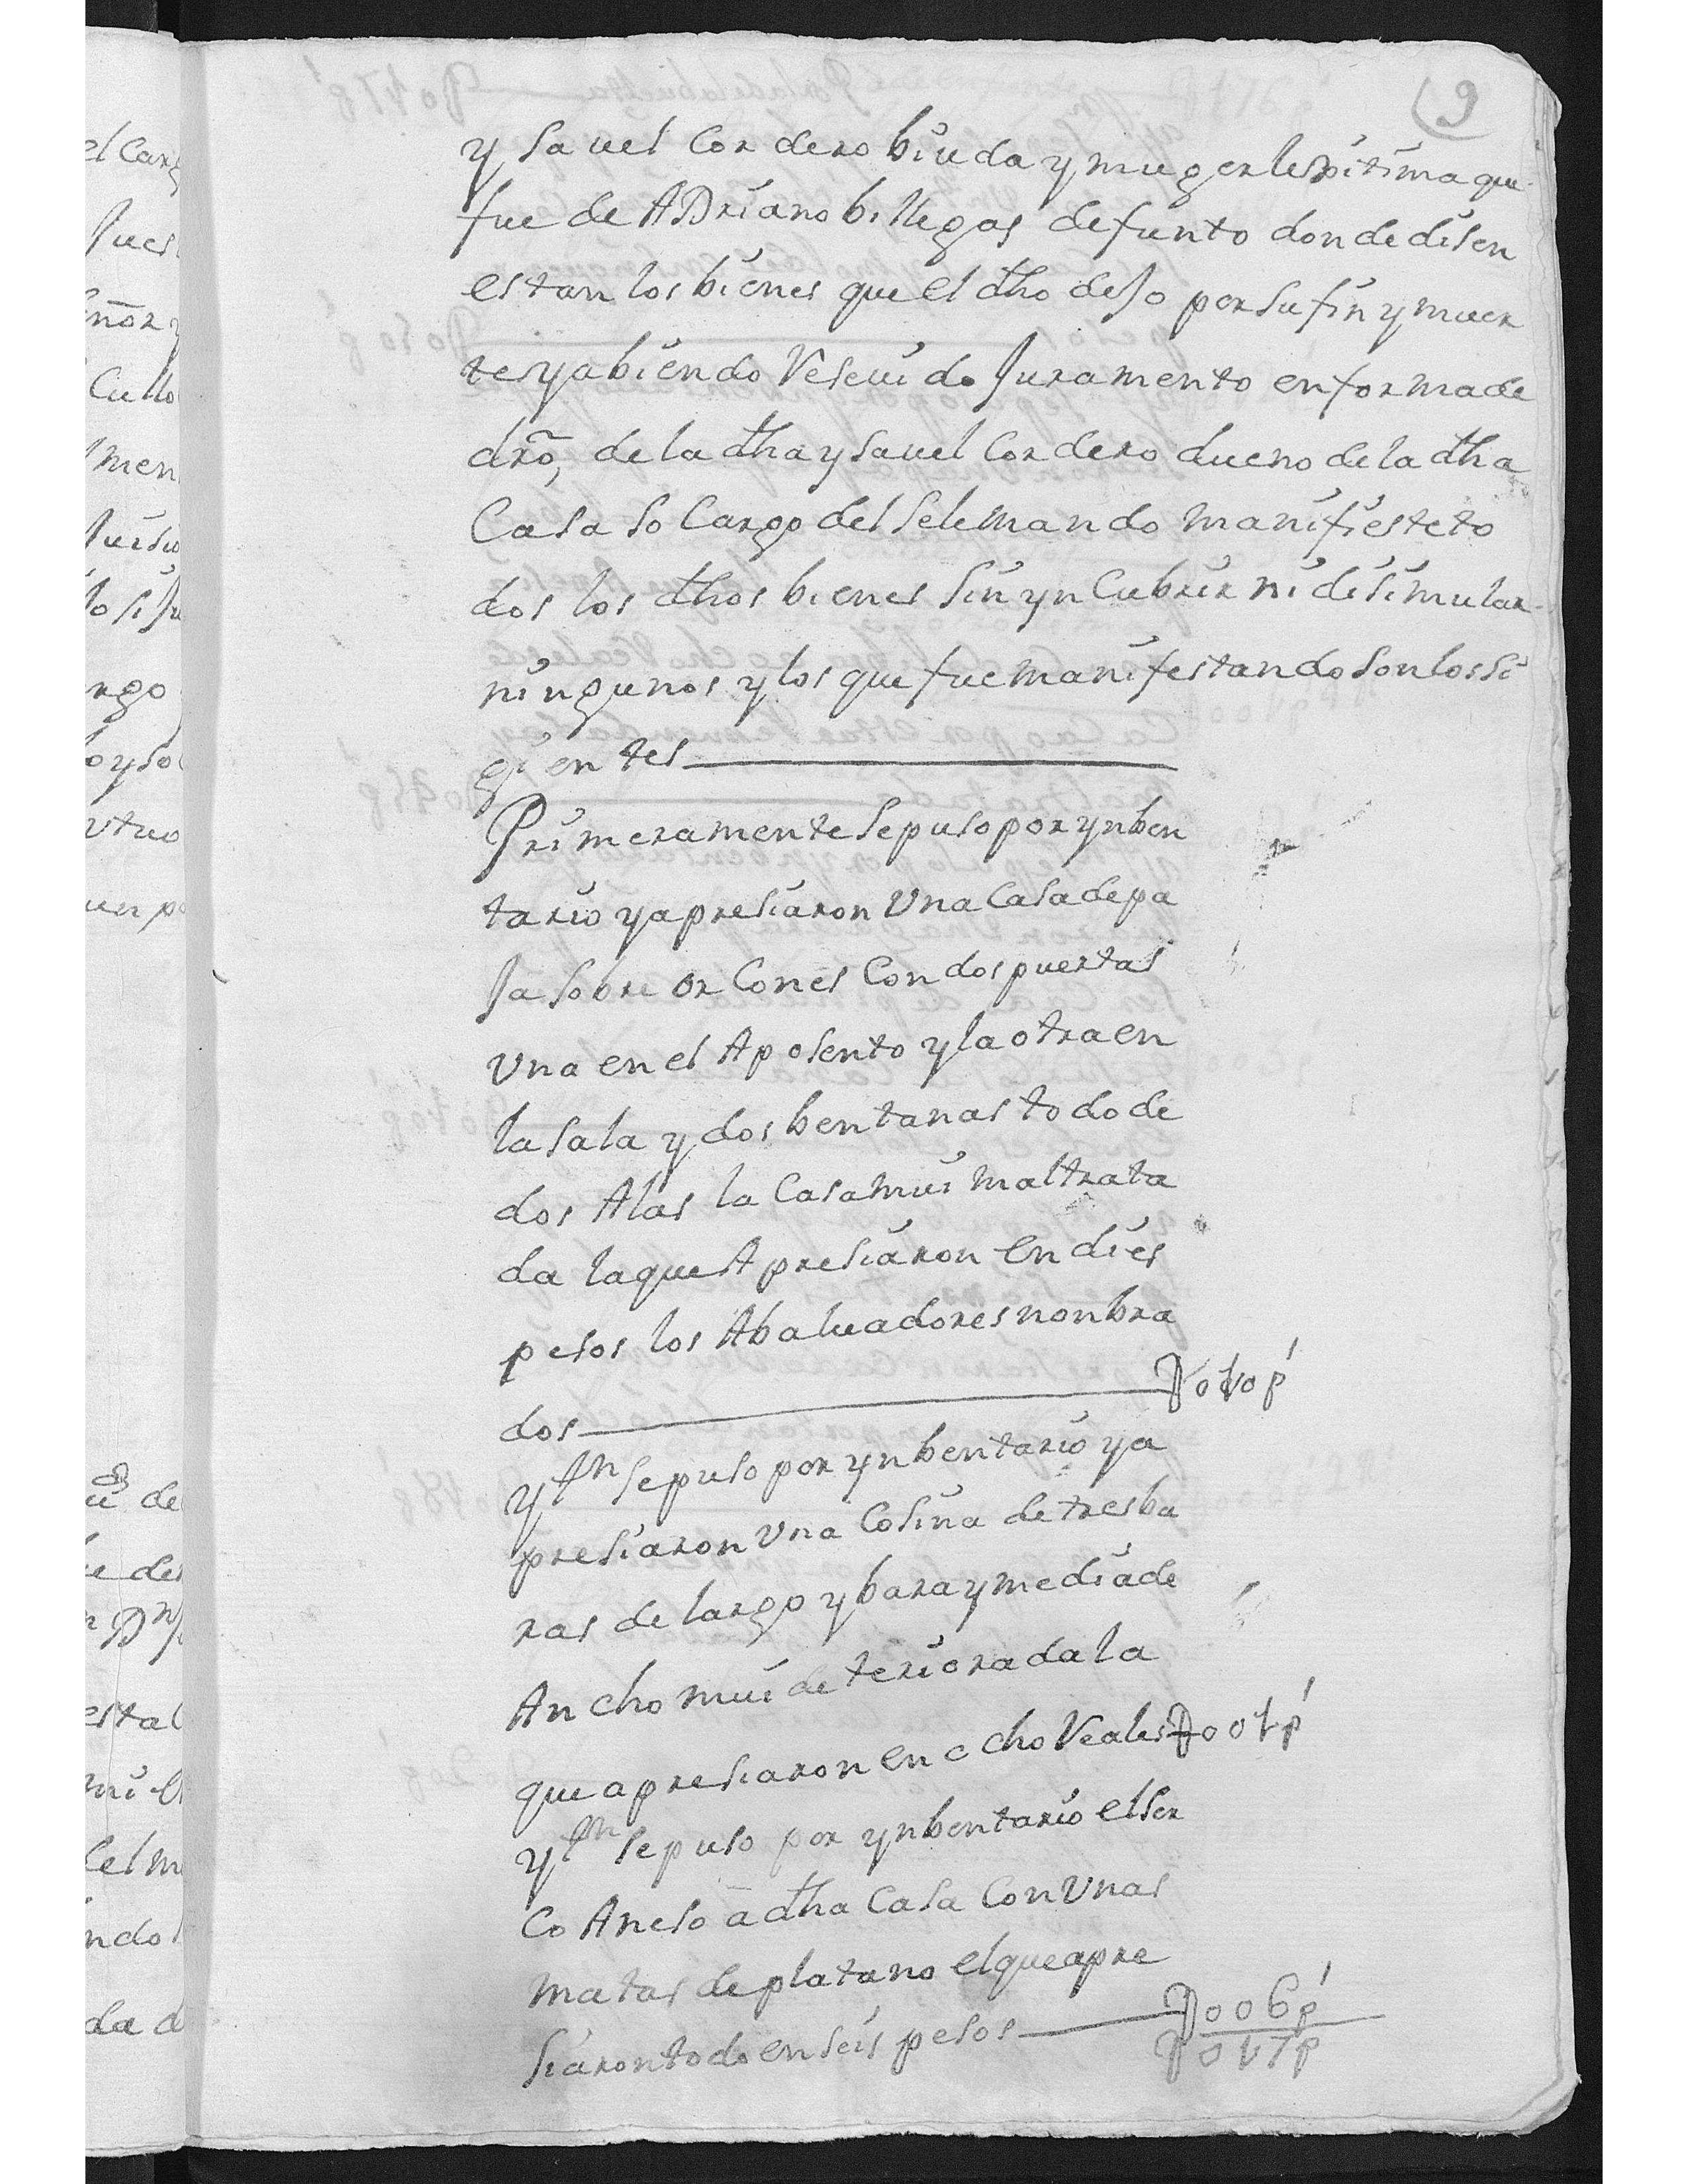 9
ysavel Cordero biuda y muger lexitima que
fue de ADriano billegas defunto donde disen
estan los bienes que el dho dejo por su fin y muer
te y abiendo Reseuido Juramento en forma de
dro, de la dha ysavel Cordero dueno de la dha
Casa so Cargo del se le mando manifieste to
dos los dhos bienes sin ynCubrir ni disimular
ningunos y los que fue manifestando son los si
gientes
Primeramente se puso por ynben
tario y apresiaron Una Casa de pa
Ja sobre orCones Con dos puertas
Una en el Aposento y la otra en
la sala y dos bentanas todo de
dos Alas la Casa mui maltrata
da la que Apresiaron en dies
pesos los Abaluadores nonbra
dos 010 p
Ytn se puso por ynbentario y a
presiaron Una Cosina de tres ba
ras de largo y bara y media de
Ancho mui deteriorada la
que apresiaron en ocho Reales 001 p
Ytn se puso por ynbentario el ser
Co Aneso a dha Casa Con Unas
matas de platano el que apre
siaron todo en seis pesos 006 p
017 p